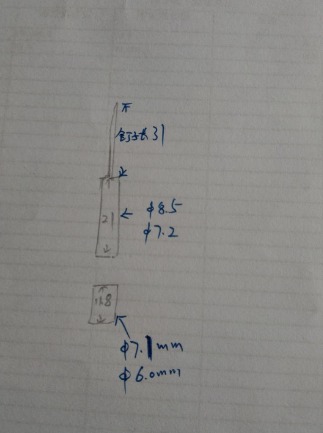 钉长31
21
φ8.5
φ7.2
φ7.1mm
φ6.0mm